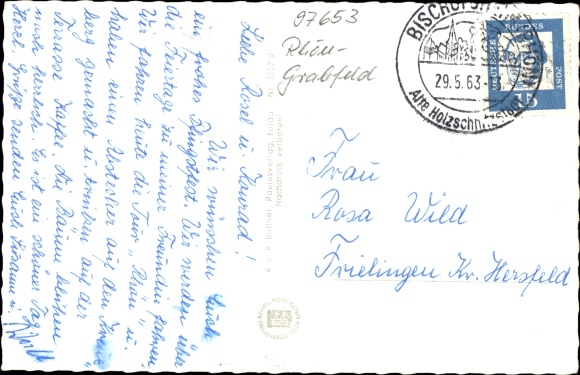 Liebe Rosel u. Konrad!
Wir wünschen Euch
ein frohes Pfingstfest. Wir werden über
die Feiertage zu meiner Freundin fahren
Wir fahren heute die Tour „Rhön" u.
haben einen Abstecher auf den Kreuz-
berg gemacht u. trinken auf der
Terasse Kaffee. Die Bäume blühen
noch herrlich. Es ist ein schöner Tag.
Herzl. Grüße senden Euch Susanne u.
97653
Rhön-
Grabfeld
K. u. R. Büttner Papierverlag, Fulda Nr. 3532 d
Nachdruck verboten!
BISCHOFSHEIM
29.5.63
Alte Holzschnitzstadt
DEUTSCHE BUNDESPOST
15
Frau
Rosa Wild
Frielingen Kr. Hersfeld